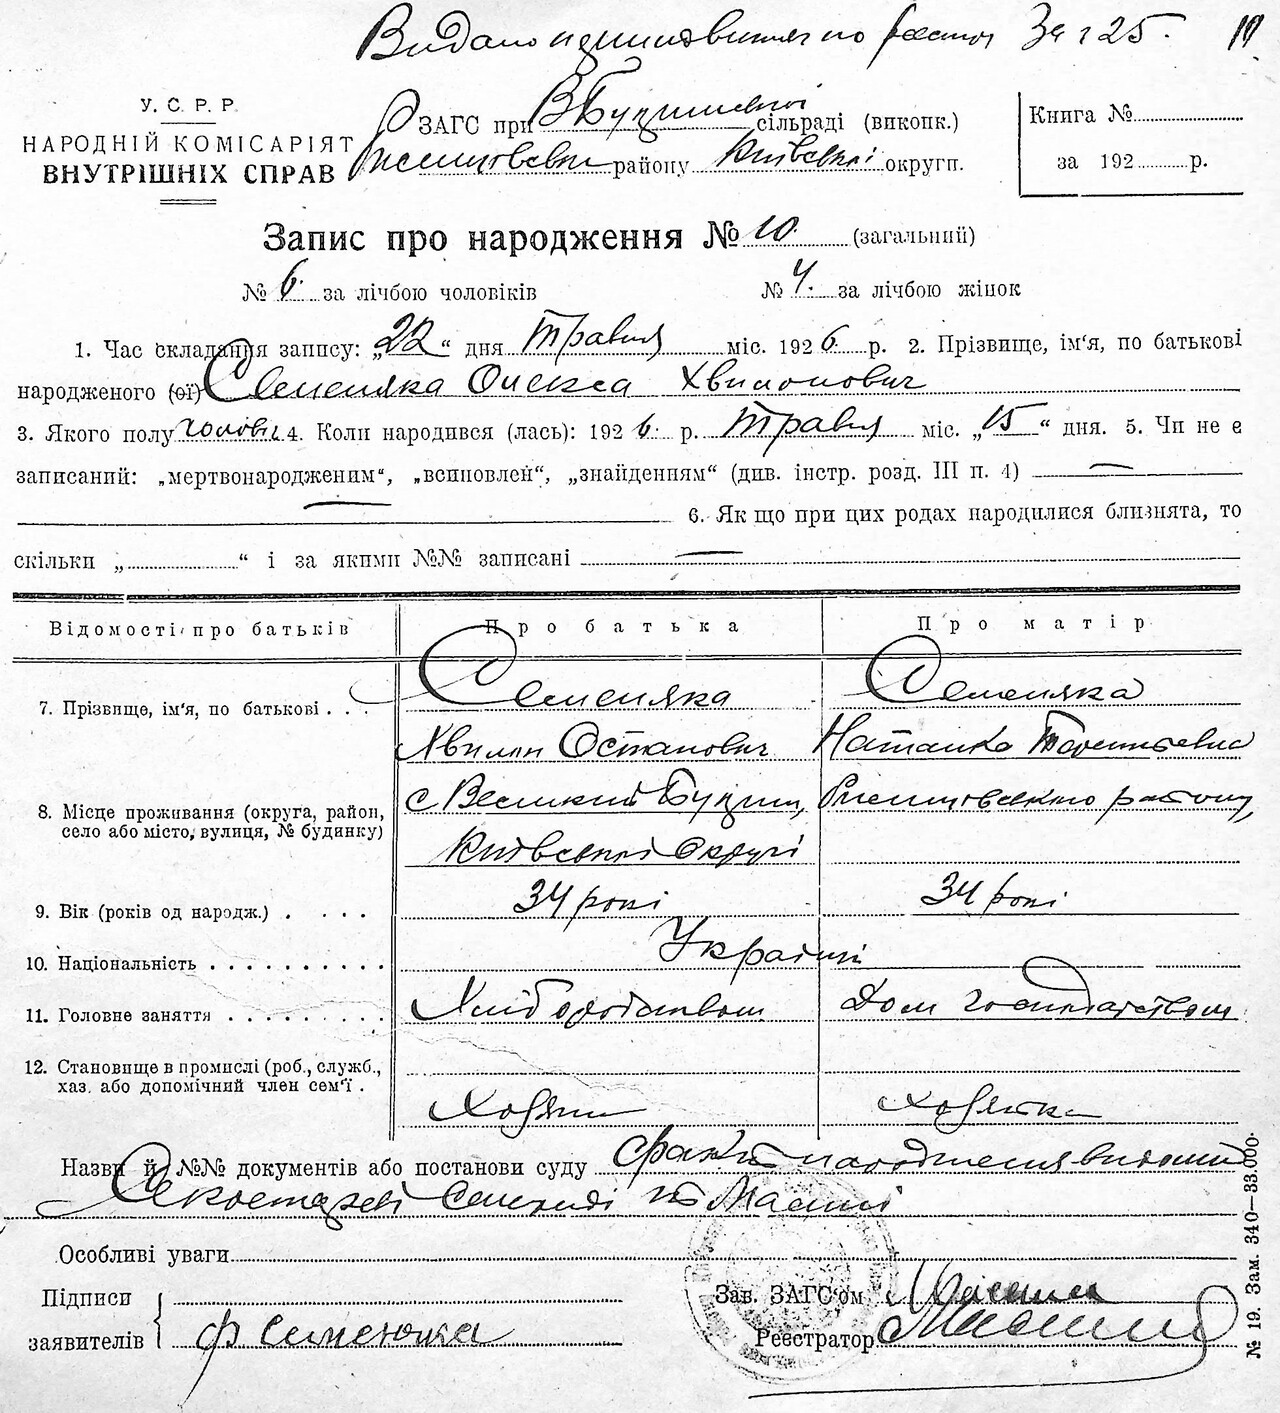 Видано по За № 25. 10
У. С. Р. Р.
НАРОДНІЙ КОМІСАРІЯТ
ВНУТРІШНІХ СПРАВ
ЗАГС при В Бугаївській сільраді (викопк.)
району Київської округи.
Книга №
за 192 р.
Запис про народження № 10. (загальний)
№ 6. за лічбою чоловіків № 4. за лічбою жінок
1. Час складання запису: „22“ дня Травня міс. 1926 р. 2. Прізвище, ім'я, по батькові
народженого (ої) Семеняка Олекса Хвилонович
3. Якого полу чолов. 4. Коли народився (лась): 1926. р. Травня міс. „15“ дня. 5. Чи не є
записаний: „мертвонародженим“, „всиновлен“, „знайденням“ (див. інстр. розд. III п. 4) —
— 6. Як що при цих родах народилися близнята, то
скільки „ “ і за якими №№ записані —
Відомості про батьків Про батька Про матір
7. Прізвище, ім'я, по батькові . . . Семеняка Семеняка
Хвилон Остапович Наталка
8. Місце проживання (округа, район, село або місто, вулиця, № будинку) с Великий району,
Київської Округи
9. Вік (років од народж.) . . . . 34 роки 34 роки
10. Національність . . . . . . . . . . Україн
11. Головне заняття . . . . . . . . . Хліборобством Дом господарством
12. Становище в промислі (роб., служб.,
хаз. або допомічний член сем'ї . Хозяїн хозяйка
Назви й №№ документів або постанови суду факт народження
Особливі уваги
Підписи
заявителів Ф Семеняка
Зав. ЗАГС'ом
Реєстратор
№ 19. Зам. 340—33.000.